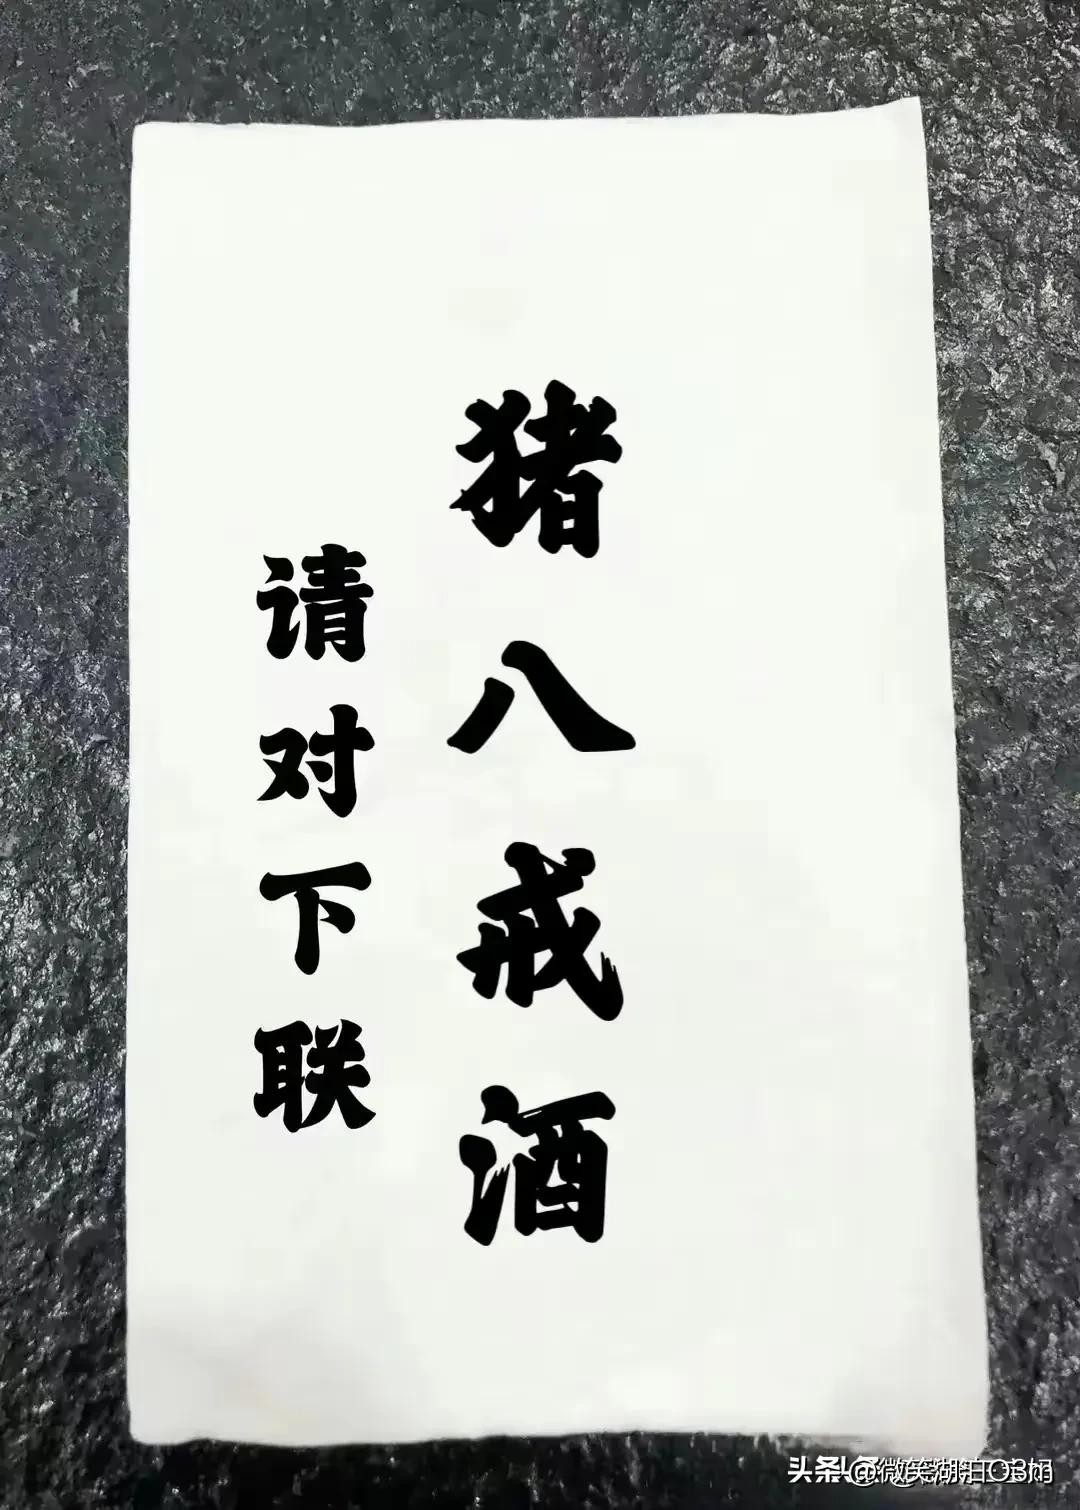 猪八戒酒
请对下联
头条@微笑湖泊O3m